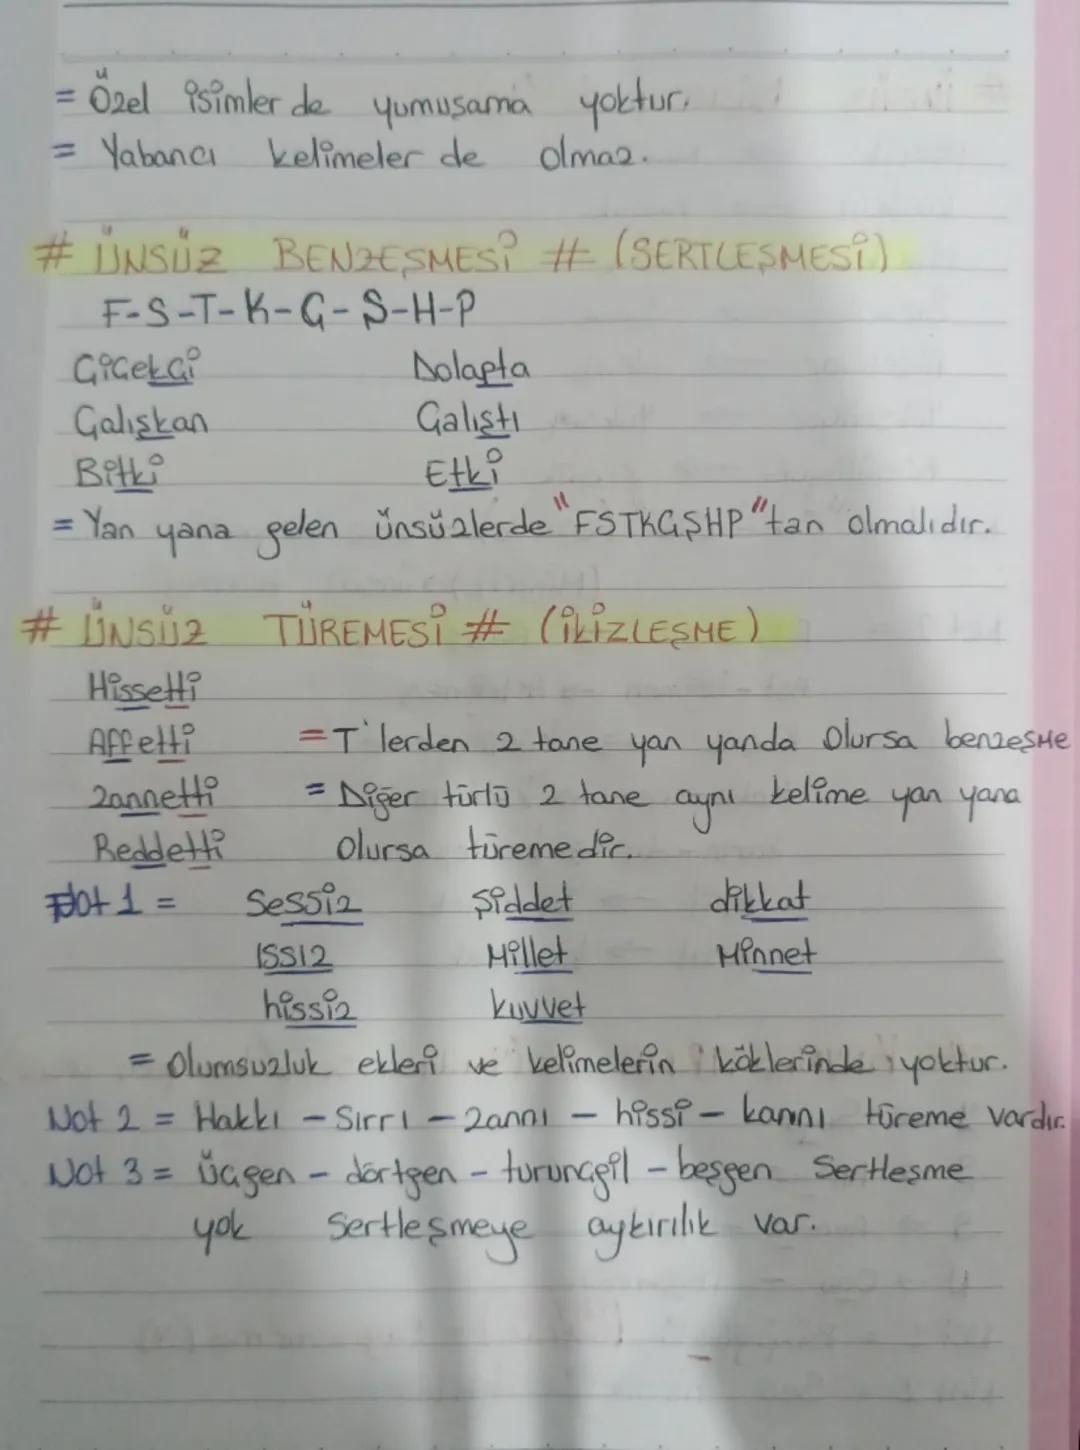 = Özel isimler de yumuşama yoktur.
= Yabancı kelimeler de olmaz.
# ÜNSÜZ BENZEŞMESİ # (SERTLEŞMESİ)
F-S-T-K-Ç-Ş-H-P
Çiçekçi Dolapta
Çalışkan Çalıştı
Bitki Etki
= Yan yana gelen ünsüzlerde "FSTKÇŞHP" tan olmalıdır.
# ÜNSÜZ TÜREMESİ # (İKİZLEŞME)
Hissetti
Affetti = T'lerden 2 tane yan yanda olursa benzeşme
Zannetti = Diğer türlü 2 tane aynı kelime yan yana
Reddetti olursa türemedir.
Not 1 = Sessiz şiddet dikkat
ıssız Millet Minnet
hissiz kuvvet
= Olumsuzluk ekleri ve kelimelerin köklerinde yoktur.
Not 2 = Hakkı - Sırrı - Zannı - hissi - kannı türeme vardır.
Not 3 = Üçgen - dörtgen - turunçgil - beşgen Sertleşme
yok Sertleşmeye aykırılık var.